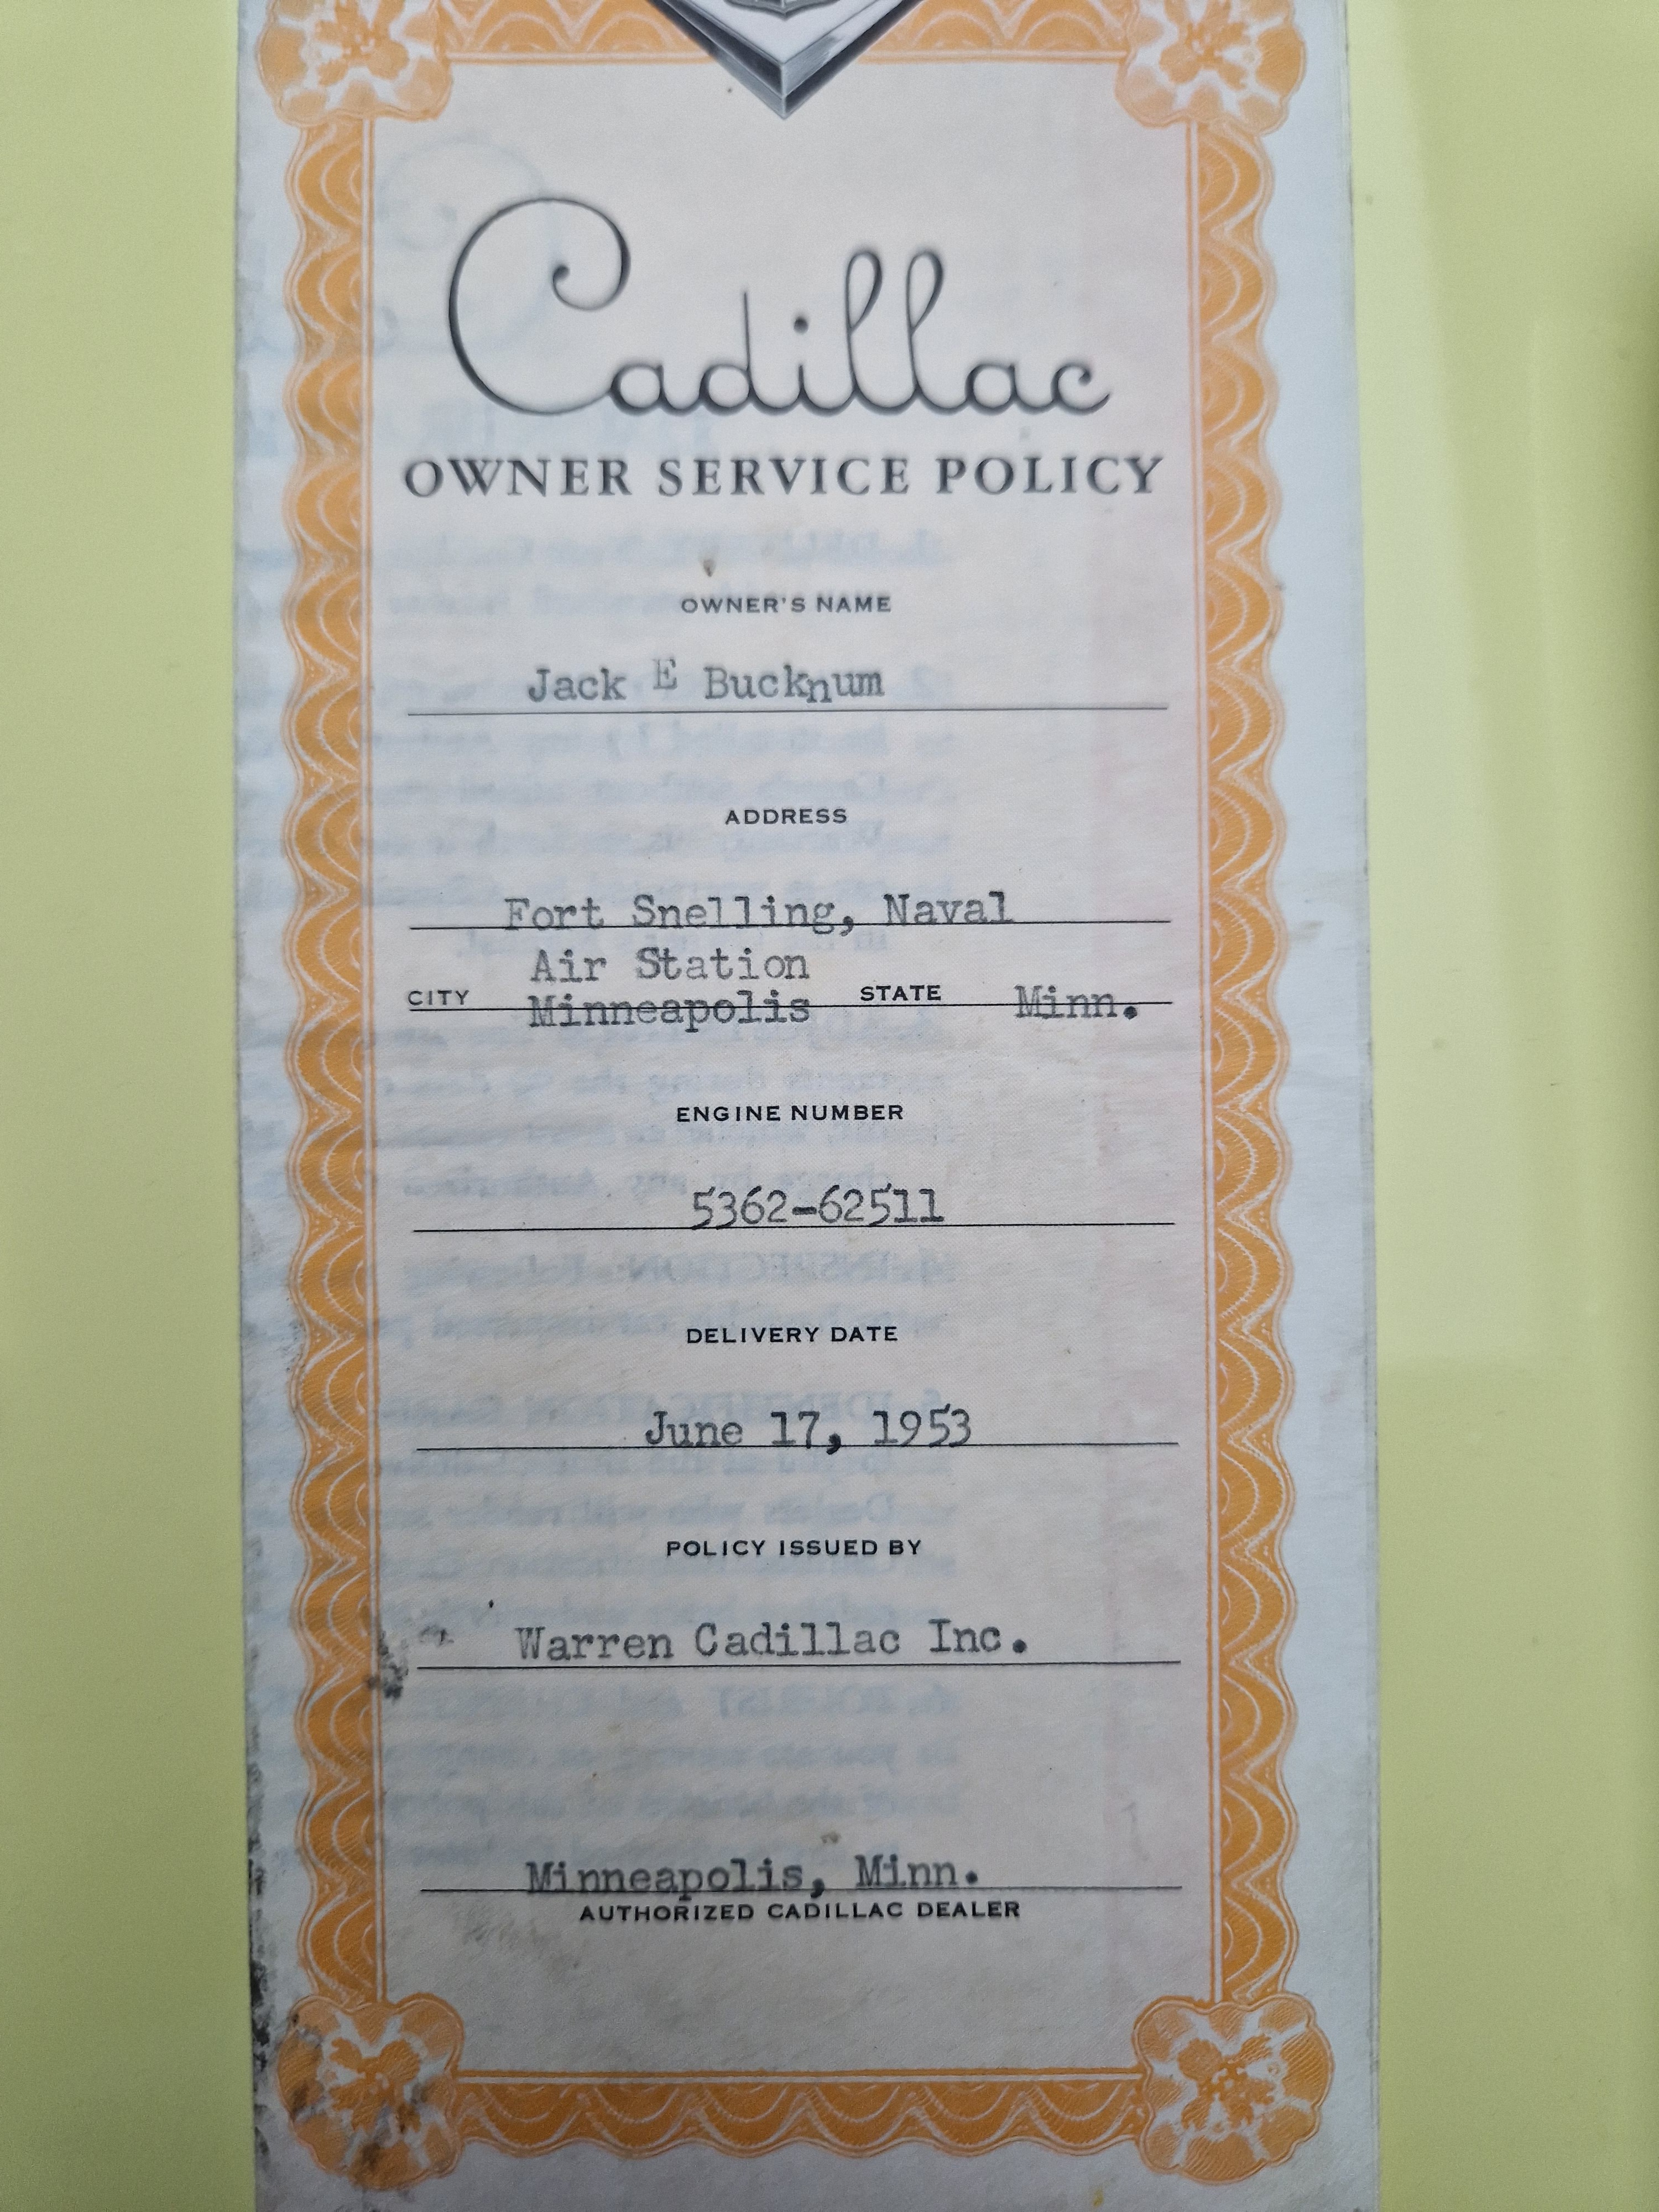 Cadillac
OWNER SERVICE POLICY
OWNER'S NAME
Jack E Bucknum
ADDRESS
Fort Snelling, Naval
Air Station
CITY Minneapolis STATE Minn.
ENGINE NUMBER
5362-62511
DELIVERY DATE
June 17, 1953
POLICY ISSUED BY
Warren Cadillac Inc.
Minneapolis, Minn.
AUTHORIZED CADILLAC DEALER